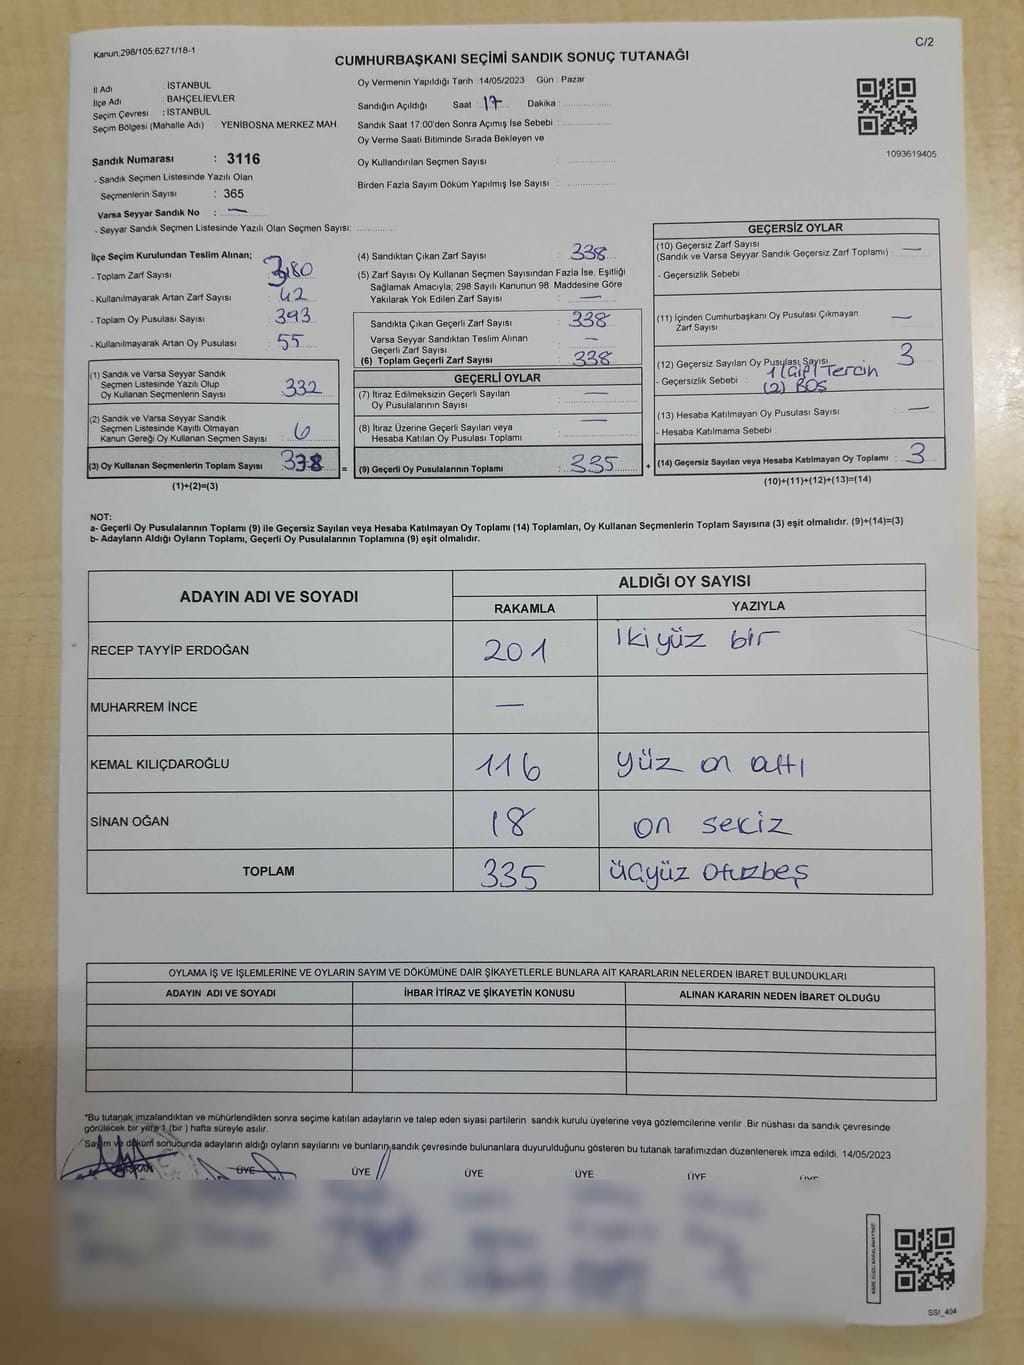 Kanun;298/105;6271/18-1
C/2
CUMHURBAŞKANI SEÇİMİ SANDIK SONUÇ TUTANAĞI
İl Adı : İSTANBUL
İlçe Adı : BAHÇELİEVLER
Seçim Çevresi : İSTANBUL
Seçim Bölgesi (Mahalle Adı) : YENİBOSNA MERKEZ MAH.
Sandık Numarası : 3116
- Sandık Seçmen Listesinde Yazılı Olan
Seçmenlerin Sayısı : 365
Varsa Seyyar Sandık No : —
- Seyyar Sandık Seçmen Listesinde Yazılı Olan Seçmen Sayısı:
Oy Vermenin Yapıldığı Tarih : 14/05/2023 Gün : Pazar
Sandığın Açıldığı Saat : 17 Dakika :
Sandık Saat 17:00'den Sonra Açımış İse Sebebi :
Oy Verme Saati Bitiminde Sırada Bekleyen ve
Oy Kullandırılan Seçmen Sayısı :
Birden Fazla Sayım Döküm Yapılmış İse Sayısı :
1093619405
İlçe Seçim Kurulundan Teslim Alınan;
- Toplam Zarf Sayısı : 380
- Kullanılmayarak Artan Zarf Sayısı : 42
- Toplam Oy Pusulası Sayısı : 393
- Kullanılmayarak Artan Oy Pusulası : 55
(1) Sandık ve Varsa Seyyar Sandık
Seçmen Listesinde Yazılı Olup
Oy Kullanan Seçmenlerin Sayısı : 332
(2) Sandık ve Varsa Seyyar Sandık
Seçmen Listesinde Kayıtlı Olmayan
Kanun Gereği Oy Kullanan Seçmen Sayısı : 6
(3) Oy Kullanan Seçmenlerin Toplam Sayısı : 338 =
(1)+(2)=(3)
(4) Sandıktan Çıkan Zarf Sayısı : 338
(5) Zarf Sayısı Oy Kullanan Seçmen Sayısından Fazla İse, Eşitliği
Sağlamak Amacıyla; 298 Sayılı Kanunun 98. Maddesine Göre
Yakılarak Yok Edilen Zarf Sayısı : —
Sandıkta Çıkan Geçerli Zarf Sayısı : 338
Varsa Seyyar Sandıktan Teslim Alınan
Geçerli Zarf Sayısı : —
(6) Toplam Geçerli Zarf Sayısı : 338
GEÇERLİ OYLAR
(7) İtiraz Edilmeksizin Geçerli Sayılan
Oy Pusulalarının Sayısı : —
(8) İtiraz Üzerine Geçerli Sayılan veya
Hesaba Katılan Oy Pusulası Toplamı : —
(9) Geçerli Oy Pusulalarının Toplamı : 335 +
GEÇERSİZ OYLAR
(10) Geçersiz Zarf Sayısı
(Sandık ve Varsa Seyyar Sandık Geçersiz Zarf Toplamı) : —
- Geçersizlik Sebebi :
(11) İçinden Cumhurbaşkanı Oy Pusulası Çıkmayan
Zarf Sayısı : —
(12) Geçersiz Sayılan Oy Pusulası Sayısı : 3
- Geçersizlik Sebebi : 1 (Çift) Tercih
(2) BOŞ
(13) Hesaba Katılmayan Oy Pusulası Sayısı : —
- Hesaba Katılmama Sebebi :
(14) Geçersiz Sayılan veya Hesaba Katılmayan Oy Toplamı : 3
(10)+(11)+(12)+(13)=(14)
NOT:
a- Geçerli Oy Pusulalarının Toplamı (9) ile Geçersiz Sayılan veya Hesaba Katılmayan Oy Toplamı (14) Toplamları, Oy Kullanan Seçmenlerin Toplam Sayısına (3) eşit olmalıdır. (9)+(14)=(3)
b- Adayların Aldığı Oyların Toplamı, Geçerli Oy Pusulalarının Toplamına (9) eşit olmalıdır.
ADAYIN ADI VE SOYADI
ALDIĞI OY SAYISI
RAKAMLA YAZIYLA
RECEP TAYYİP ERDOĞAN 201 İki yüz bir
MUHARREM İNCE —
KEMAL KILIÇDAROĞLU 116 yüz on altı
SİNAN OĞAN 18 on sekiz
TOPLAM 335 üçyüz otuzbeş
OYLAMA İŞ VE İŞLEMLERİNE VE OYLARIN SAYIM VE DÖKÜMÜNE DAİR ŞİKAYETLERLE BUNLARA AİT KARARLARIN NELERDEN İBARET BULUNDUKLARI
ADAYIN ADI VE SOYADI İHBAR İTİRAZ VE ŞİKAYETİN KONUSU ALINAN KARARIN NEDEN İBARET OLDUĞU
*Bu tutanak imzalandıktan ve mühürlendikten sonra seçime katılan adayların ve talep eden siyasi partilerin sandık kurulu üyelerine veya gözlemcilerine verilir .Bir nüshası da sandık çevresinde
görülecek bir yere 1 (bir ) hafta süreyle asılır.
Sayım ve döküm sonucunda adayların aldığı oyların sayılarını ve bunların sandık çevresinde bulunanlara duyurulduğunu gösteren bu tutanak tarafımızdan düzenlenerek imza edildi. 14/05/2023
BAŞKAN ÜYE ÜYE ÜYE ÜYE ÜYE ÜYE
SSI_404